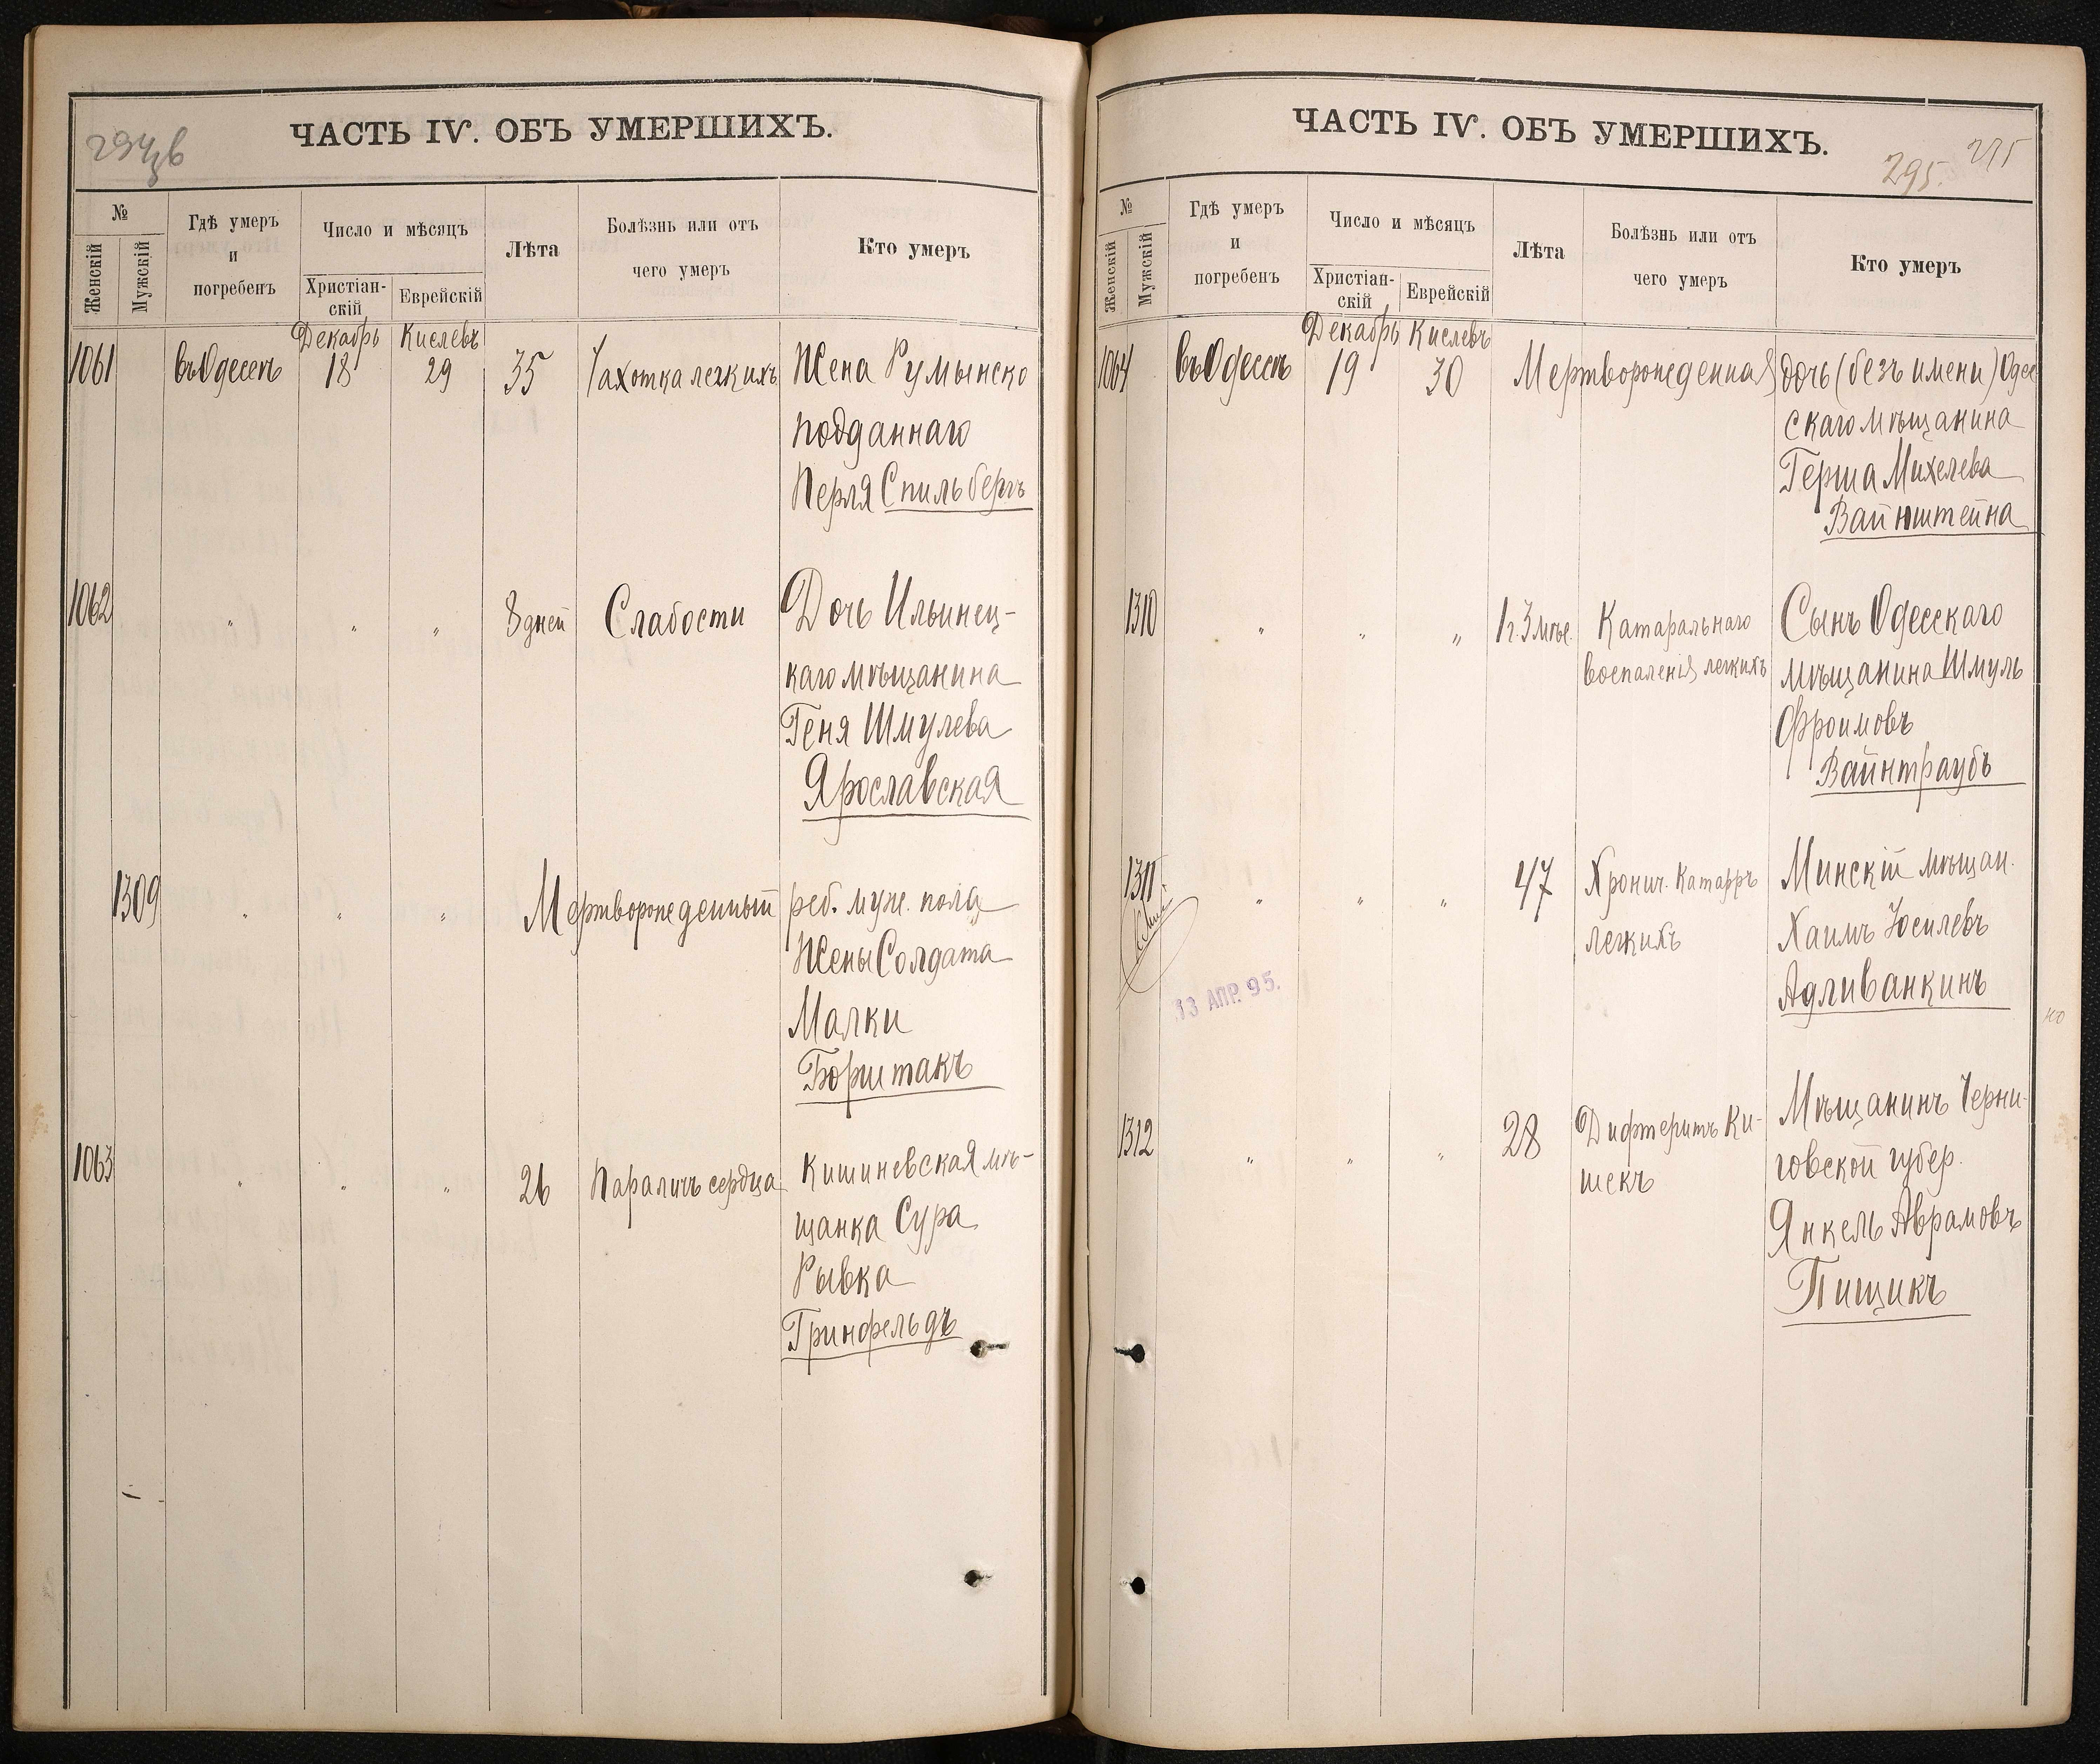 ЧАСТЬ IV. ОБЪ УМЕРШИХЪ.
№
Женскій
Мужскій
Гдѣ умеръ
и
погребенъ
Число и мѣсяцъ
Христіан-
скій
Еврейскій
Лѣта
Болѣзнь или отъ
чего умеръ
Кто умеръ
Декабрь Кислевъ
1061 въ Одессѣ 18 29 35 Чахотка легкихъ Жена Румынско
подданнаго
Перля Спильбергъ
1062 " " " 8 дней Слабости Дочь Ильинец-
каго мѣщанина
Геня Шмулева
Ярославская
1309 " " " Мертворожденный реб. муж. пола
Жены Солдата
Малки
Борштакъ
1063 " " " 26 Параличъ сердца Кишиневская мѣ-
щанка Сура
Рывка
Гринфельдъ
ЧАСТЬ IV. ОБЪ УМЕРШИХЪ.
295. 275
№
Женскій
Мужскій
Гдѣ умеръ
и
погребенъ
Число и мѣсяцъ
Христіан-
скій
Еврейскій
Лѣта
Болѣзнь или отъ
чего умеръ
Кто умеръ
Декабрь Кислевъ
1064 въ Одессѣ 19 30 Мертворожденная дочь (безъ имени) Одес
скаго мѣщанина
Герша Михелева
Вайнштейна
1310 " " " 1 г. 3 мѣс. Катаральнаго Сынъ Одесскаго
воспаленія легкихъ мѣщанина Шмуль
Фроимовъ
Вайнтраубъ
1311 " " " 47 Хронич. Катарръ Минскій мѣщан.
легкихъ Хаимъ Іосилевъ
Адливанкинъ
13 АПР. 95.
1312 " " " 28 Дифтеритъ Ки- Мѣщанинъ Черни-
шекъ говской губер.
Янкель Аврамовъ
Пищикъ